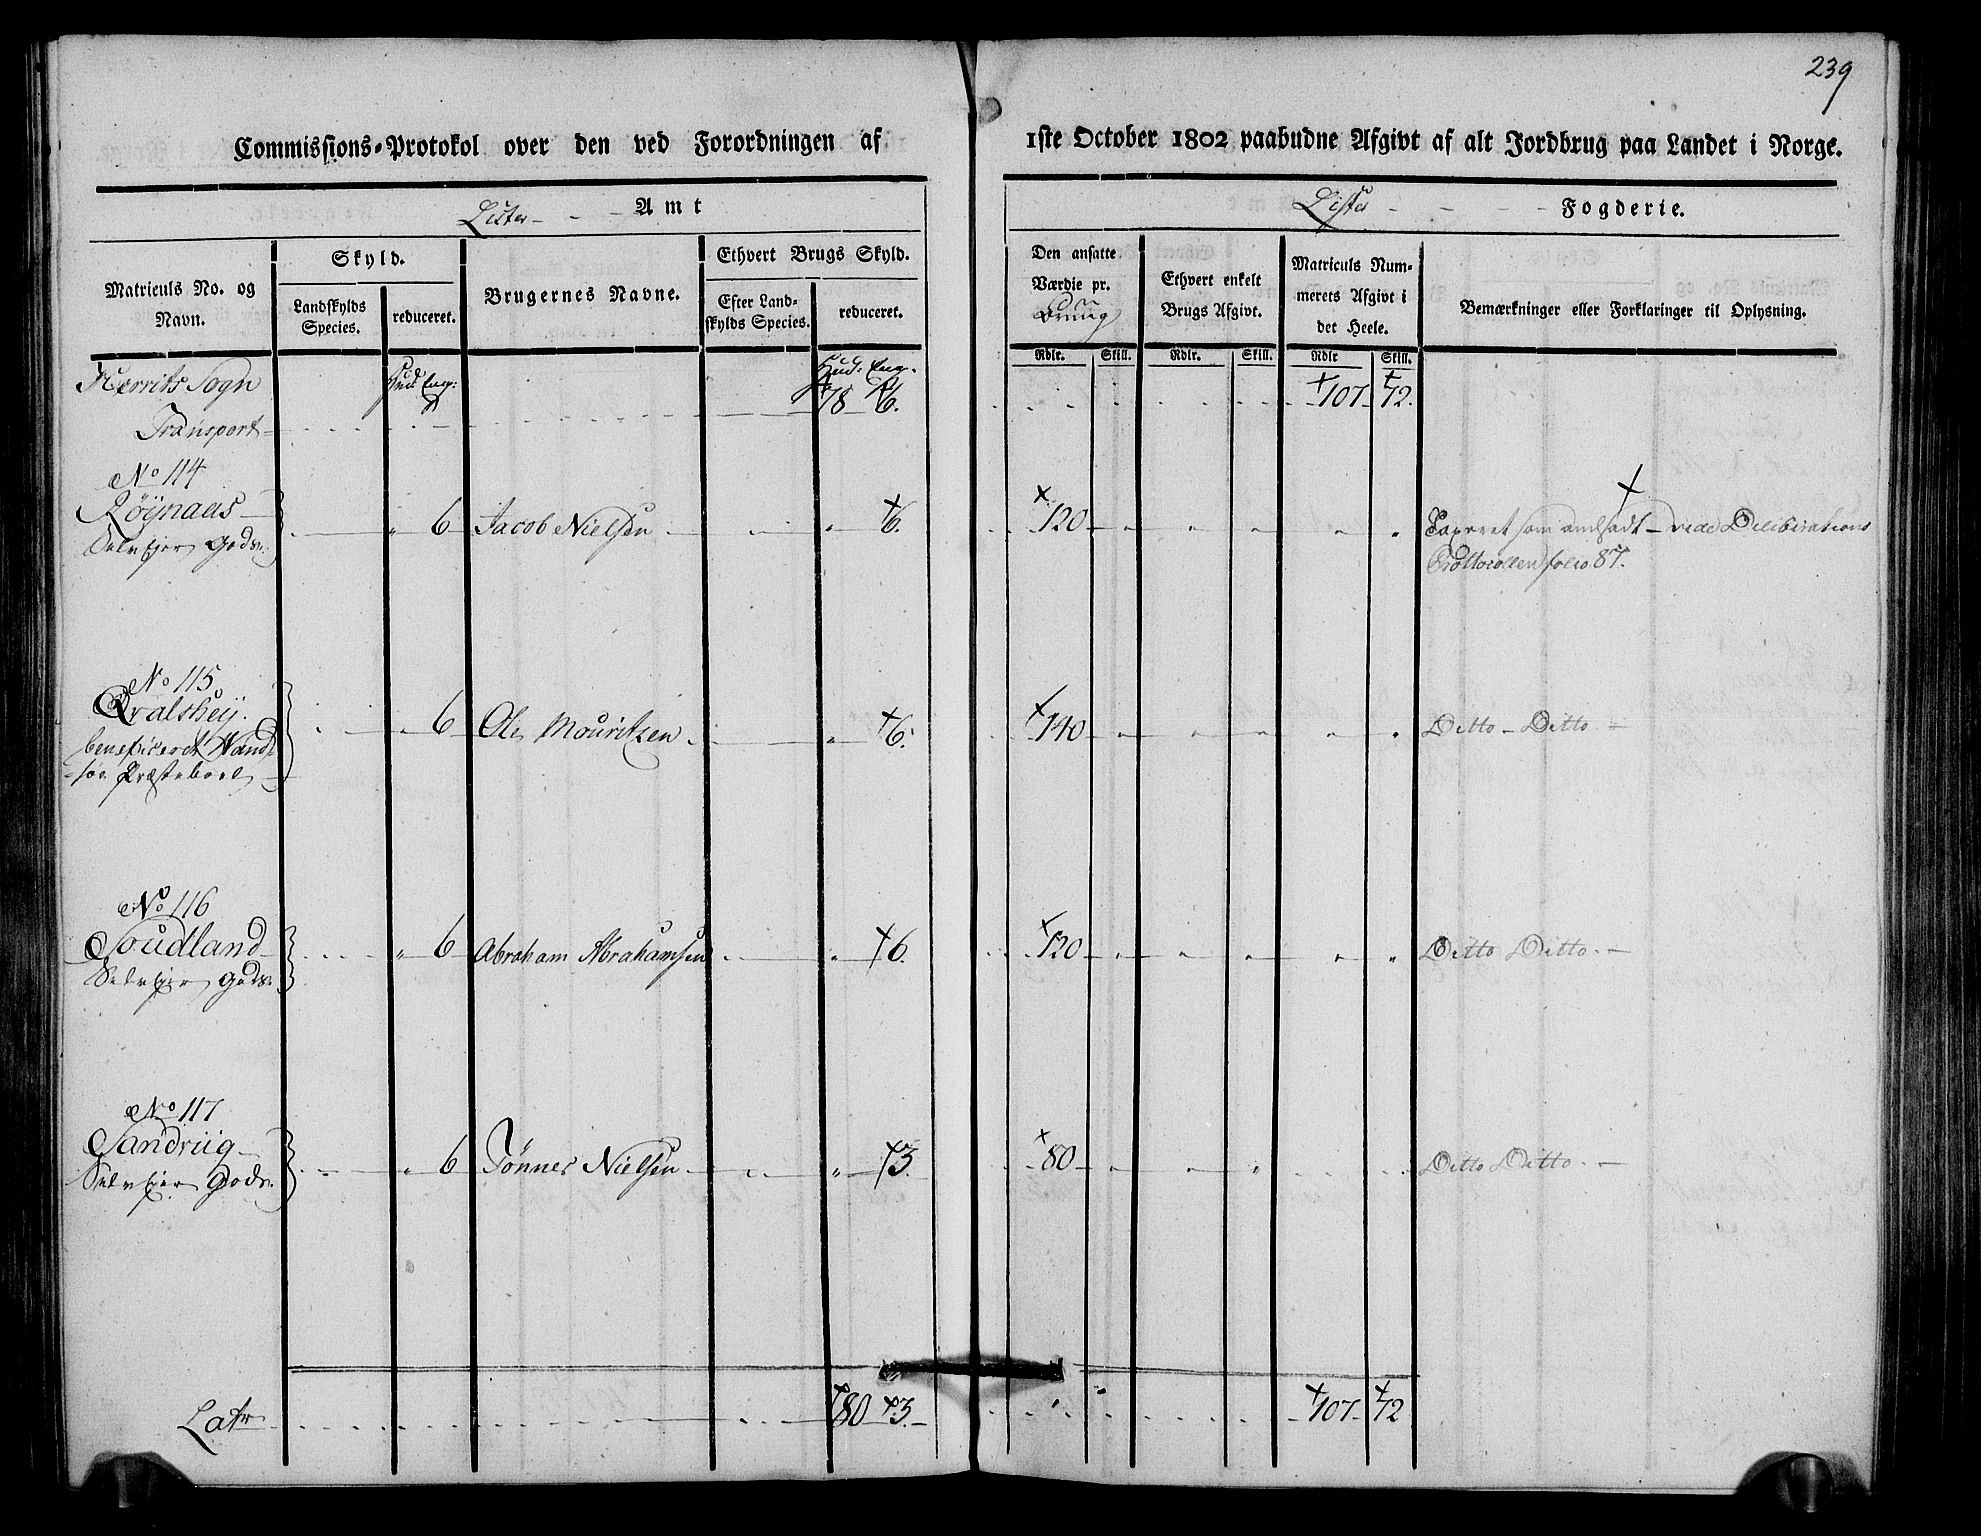 239
Commissions-Protokol over den ved Forordningen af 1ste October 1802 paabudne Afgivt af alt Jordbrug paa Landet i Norge.
Lister - - - Amt
Lister - - - Fogderie.
Matriculs No. og Navn.
Skyld.
Landskylds Species.
reduceret.
Brugernes Navne.
Ethvert Brugs Skyld.
Efter Landskylds Species.
reduceret.
Den ansatte Værdie pr.
Ethvert enkelt Brugs Afgivt.
Matriculs Nummerets Afgivt i det Heele.
Bemærkninger eller Forklaringer til Oplysning.
Rdlr. Skill. Rdlr. Skill. Rdlr Skill.
Sogn Hud: Eng: Hud: Eng.
Transport 78 6. 107 72.
No 114
Røÿnaas 6 Jacob Nielsen 6. 120 Taxeret som andsadt - vide Deliberations
Selvejer Gods. Prottocollen folio 87.
No 115
Qvalsheÿ. 6 Ole Mouritzen 6. 140 Ditto - Ditto -
beneficeret
Præsteboel
No 116
Soudland 6 Abraham Abrahamsen 6. 120 Ditto Ditto. -
Selvejer Gods.
No 117
Sandriig 6 Tønnes Nielsen 3. 80 Ditto Ditto. -
Selvejer Gods.
Latr 80 3. 107 72